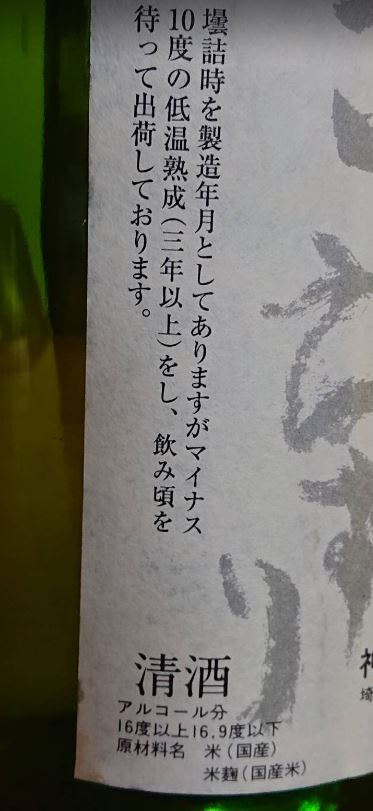 壜詰時を製造年月としてありますがマイナス
10度の低温熟成(三年以上)をし、飲み頃を
待って出荷しております。
清酒
アルコール分
16度以上16.9度以下
原材料名 米(国産)
米麹(国産米)